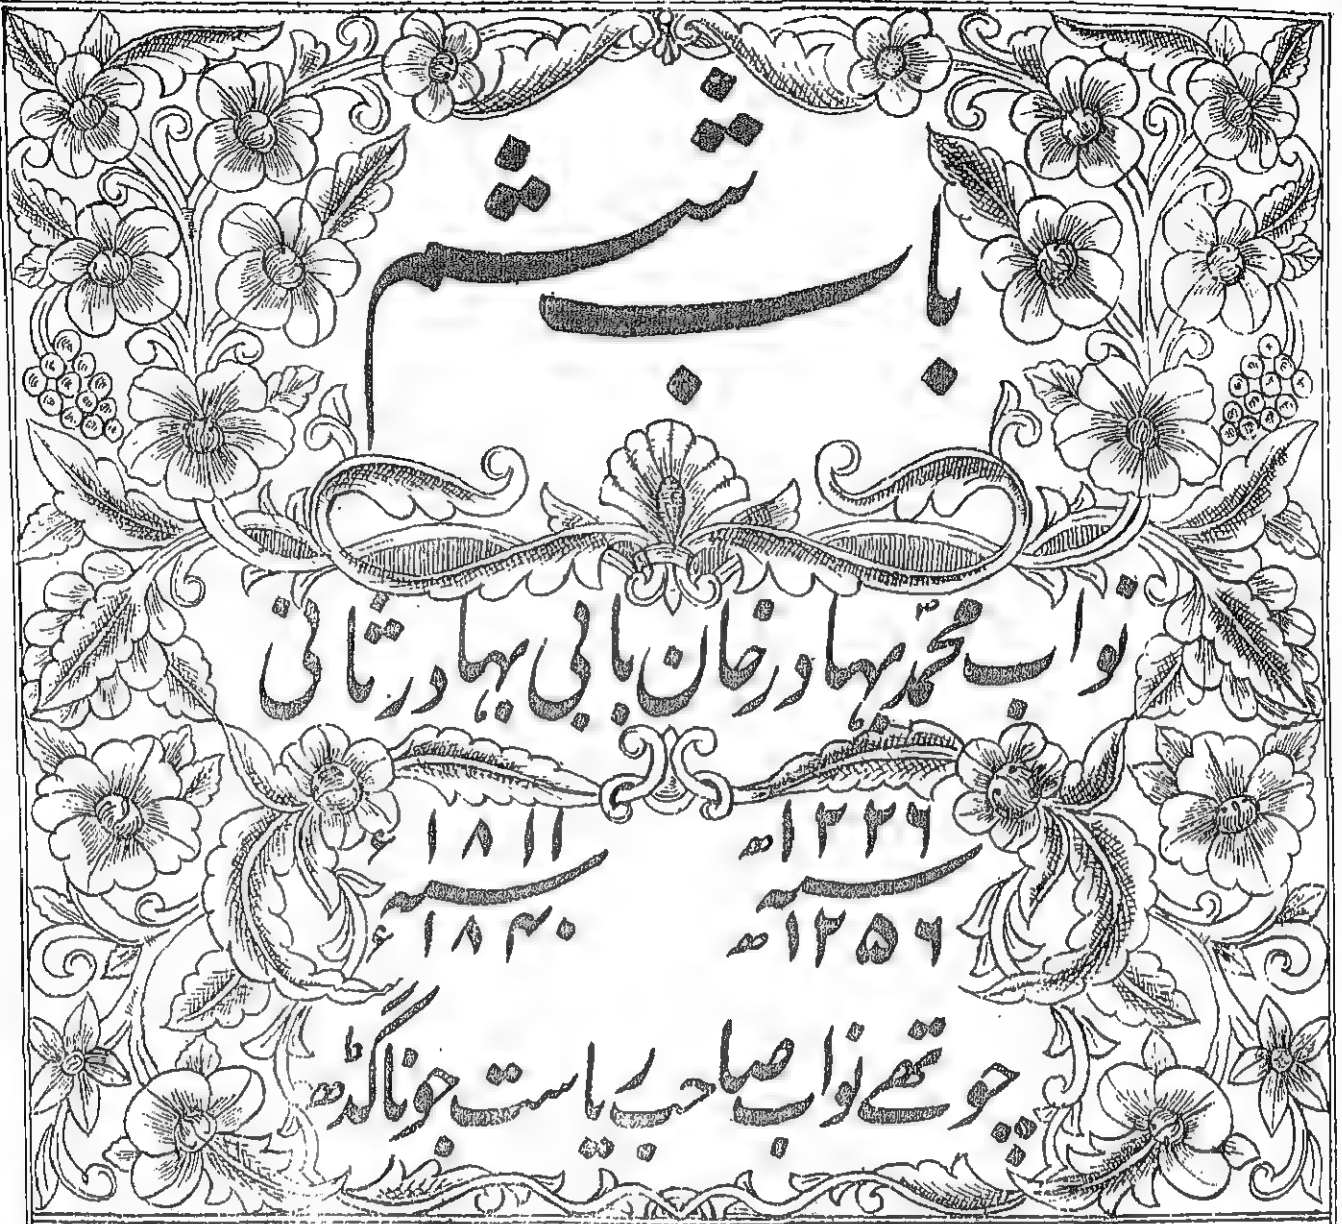 باب ششم
نواب محمد بہادر خان بابی بہادر ثانی
۱۲۲۶ھ ۱۸۱۱ء
سنہ سنہ
۱۲۵۶ھ ۱۸۴۰ء
چوتھے نواب صاحب ریاست جوناگڈھ